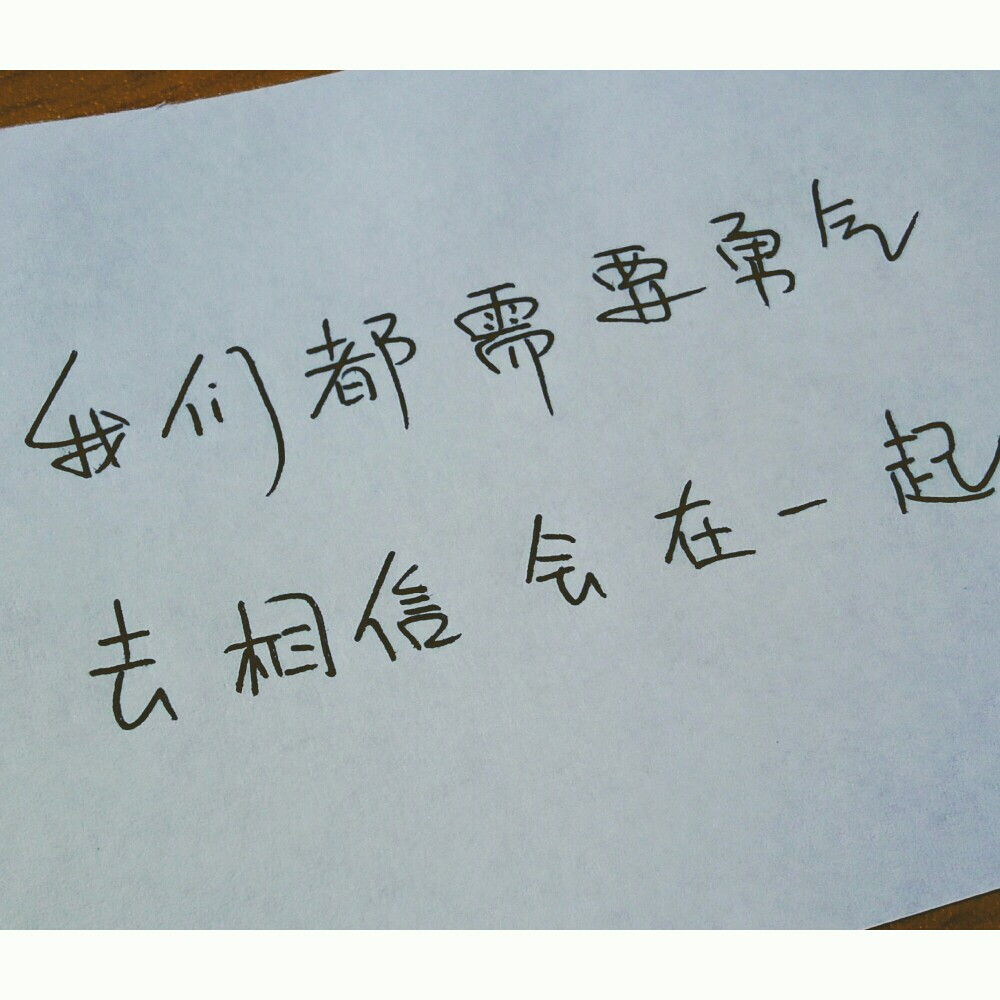 我们都需要勇气
去相信会在一起